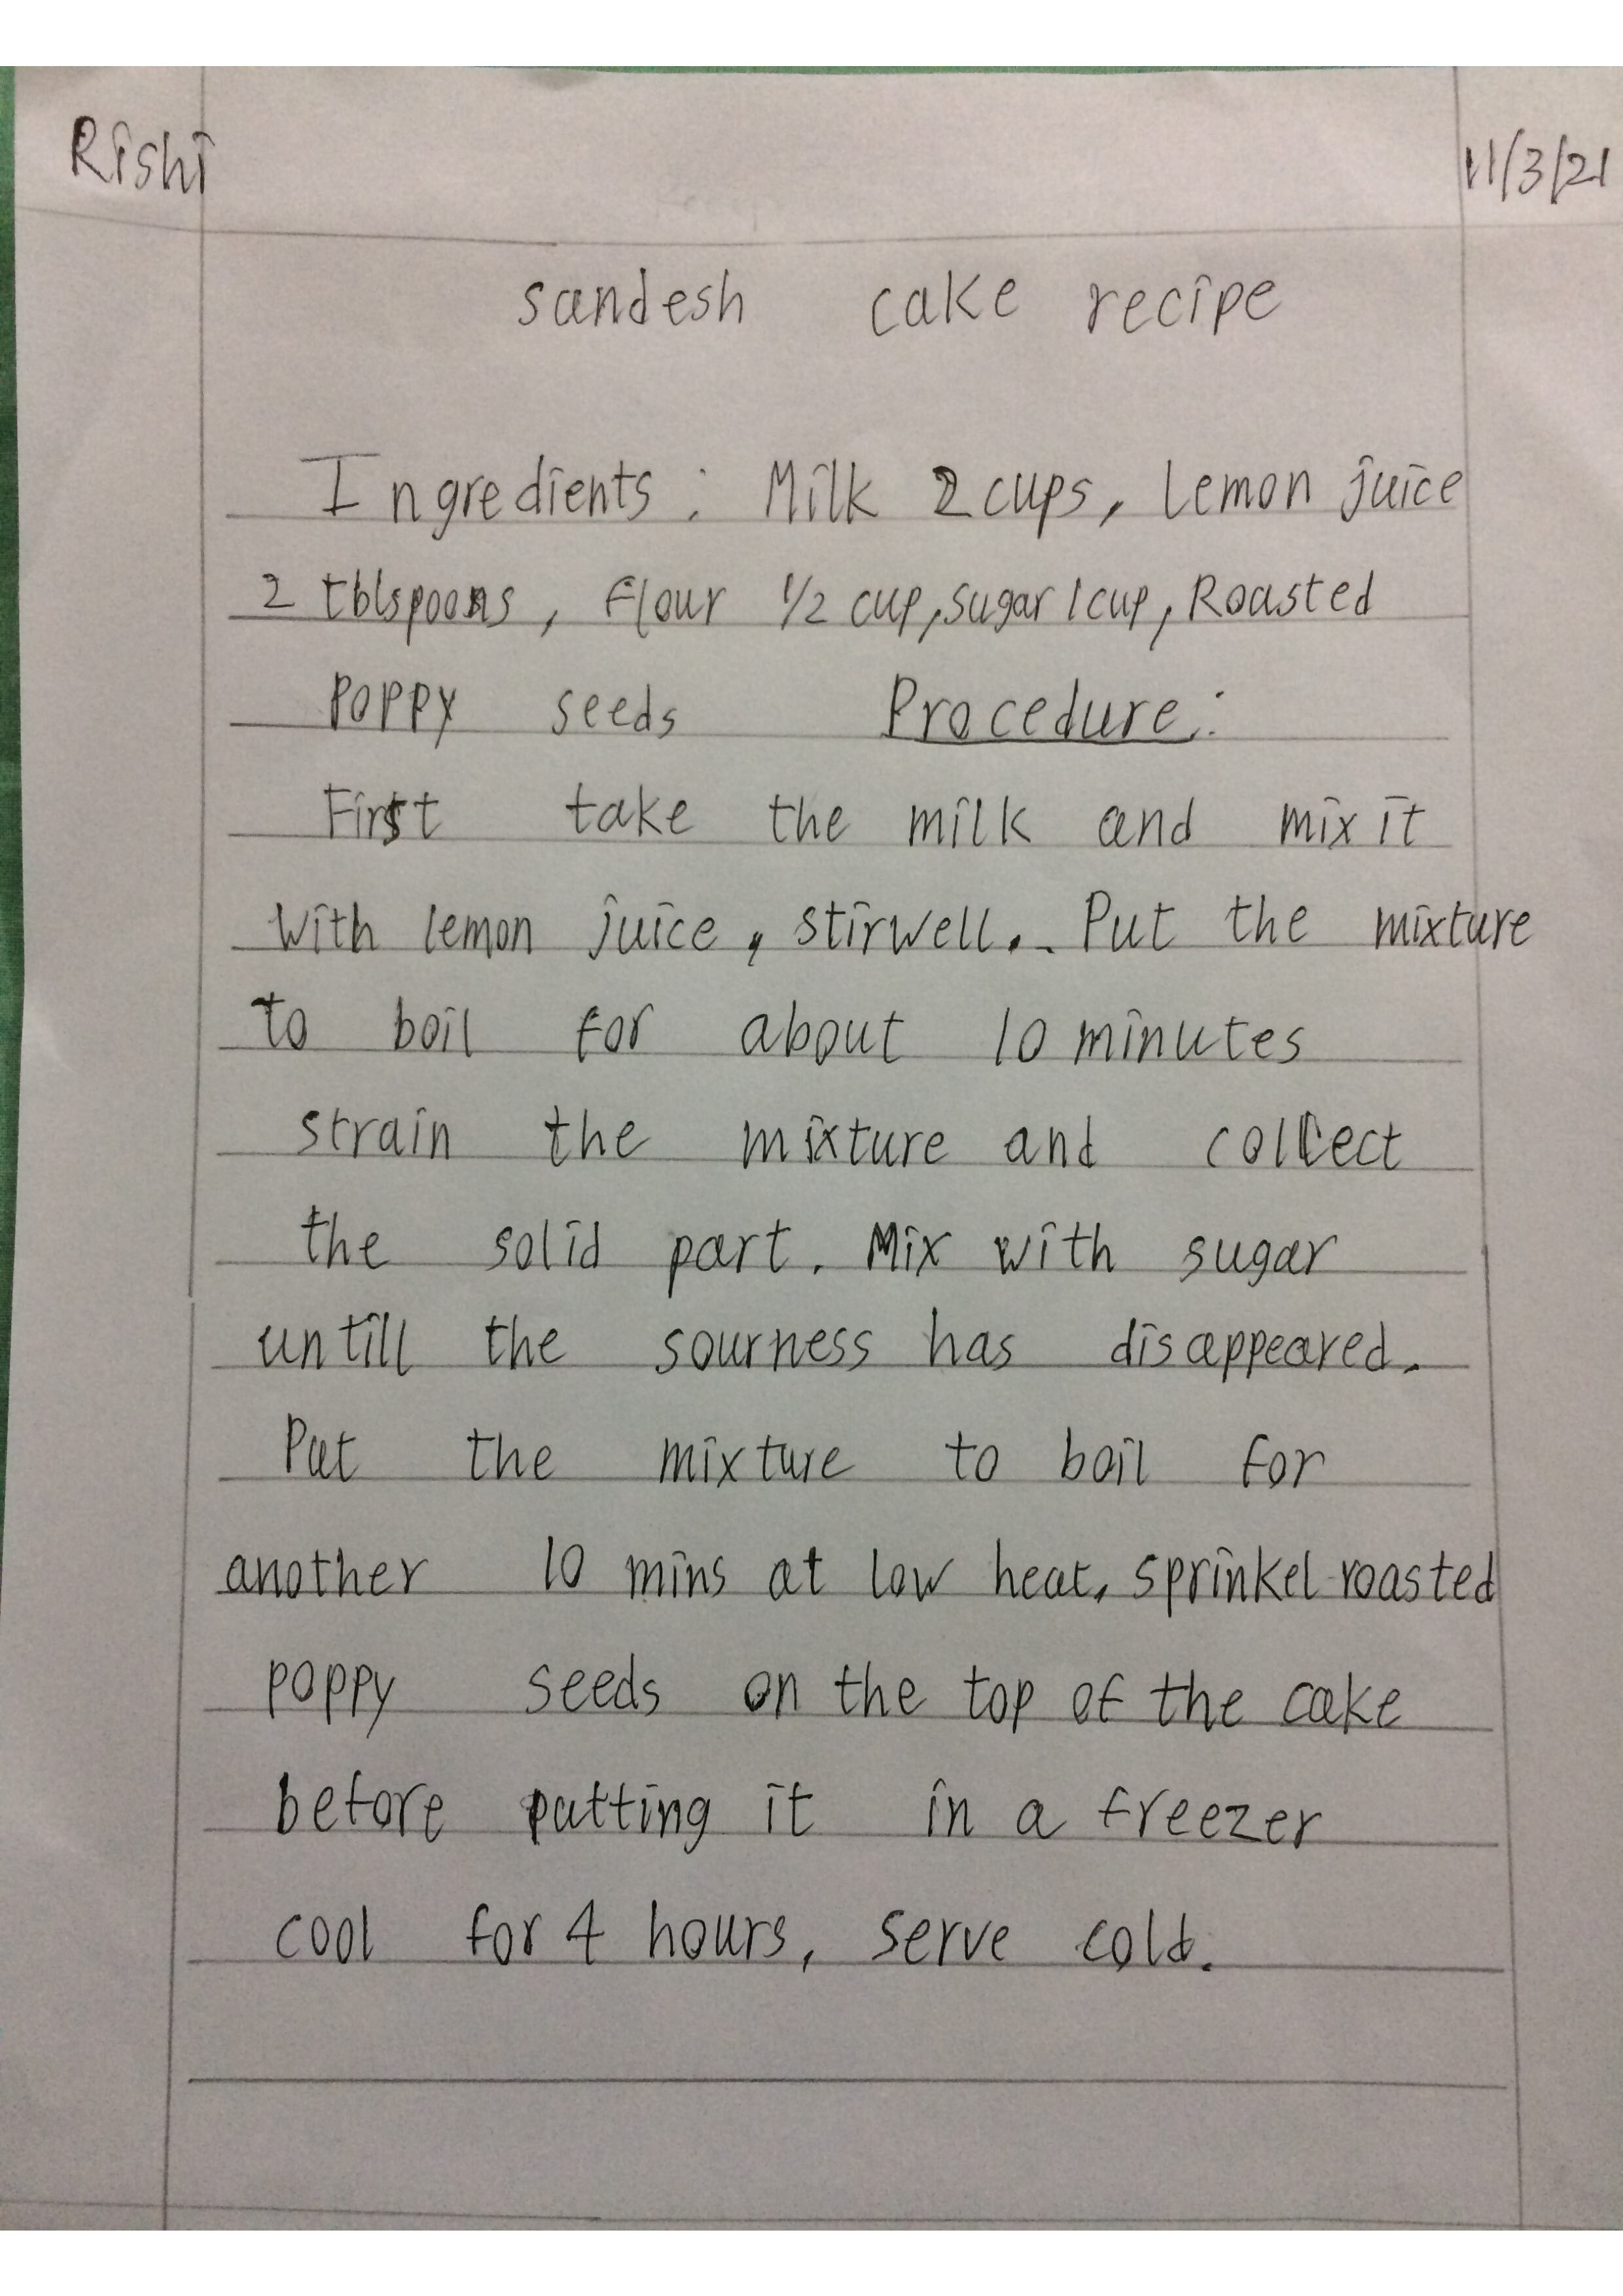 Rishi 11/3/21
sandesh cake recipe
Ingredients: Milk 2 cups, lemon juice
2 tblspoons, flour 1/2 cup, sugar 1 cup, Roasted
poppy seeds Procedure:
First take the milk and mix it
with lemon juice, stirwell. Put the mixture
to boil for about 10 minutes
strain the mixture and collect
the solid part. Mix with sugar
untill the sourness has disappeared.
Put the mixture to boil for
another 10 mins at low heat, sprinkel roasted
poppy seeds on the top of the cake
before putting it in a freezer
cool for 4 hours, serve cold.